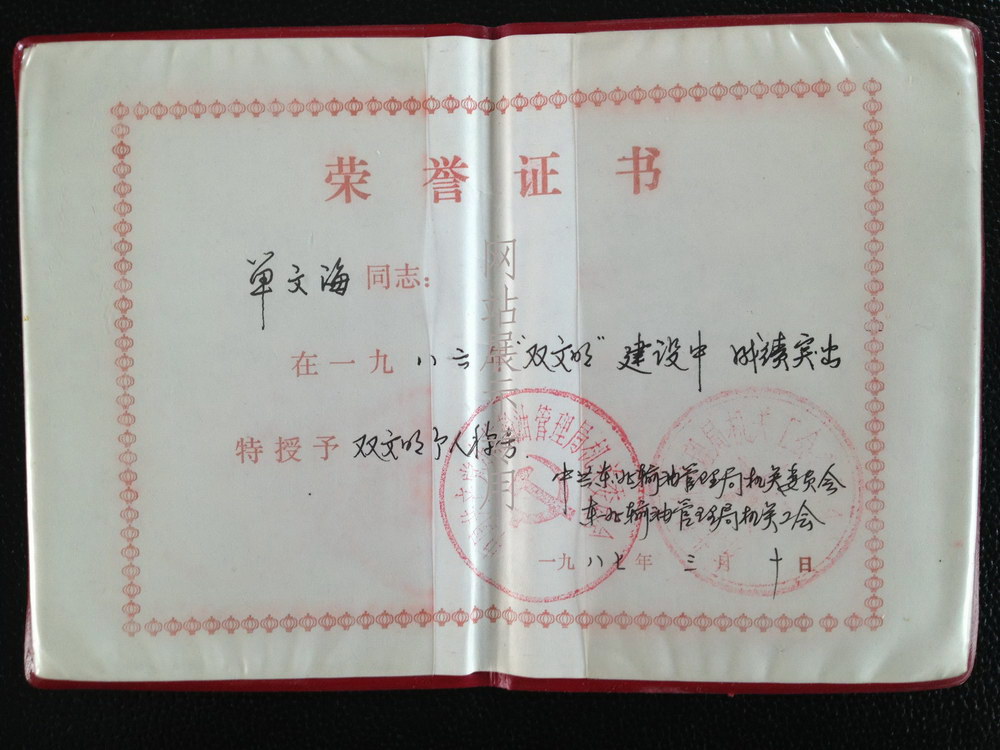 荣誉证书
单文海同志：
在一九八六年“双文明”建设中 成绩突出
特授予双文明个人称号.
中共东北输油管理局机关委员会
东北输油管理局机关工会
一九八七年三月十日
网站展示用